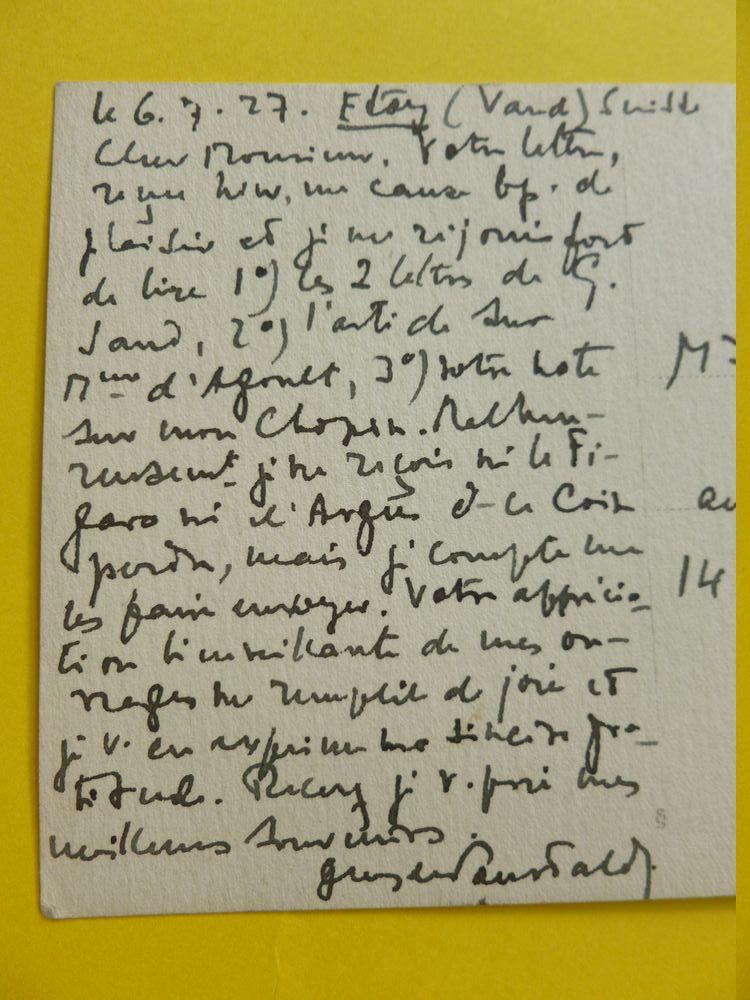 le 6.7.27. Etoy (Vaud) Suisse
Cher Monsieur, Votre lettre,
reçue hier, me cause bp. de
plaisir et je me réjouis fort
de lire 1°) les 2 lettres de G.
Sand, 2°) l'article sur
Mme d'Agoult, 3°) votre note
sur mon Chopin. Malheu-
reusemt je ne reçois ni le Fi-
garo ni l'Argus d-ce Coin
perdu, mais je compte me
les faire envoyer. Votre apprécia-
tion bienveillante de mes ou-
vrages me remplit de joie et
je v. en exprime ma sincère gra-
titude. Recevez je v. prie mes
meilleurs souvenirs.
M
au
14
§